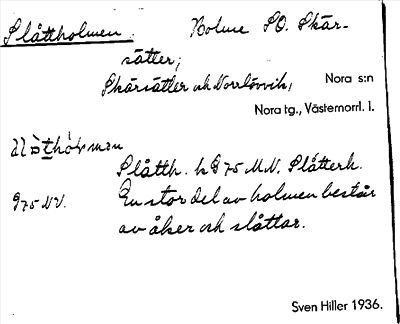 Slåttholmen. Holme SO. Skär-
sätter;
Skärsätter och Norrlövvik, Nora s:n
Nora tg., Västernorrl. l.
Slåtth. h G 75 M.N. Slåtterh.
G 75 NV. En stor del av holmen består
av åker och slåttar.
Sven Hiller 1936.